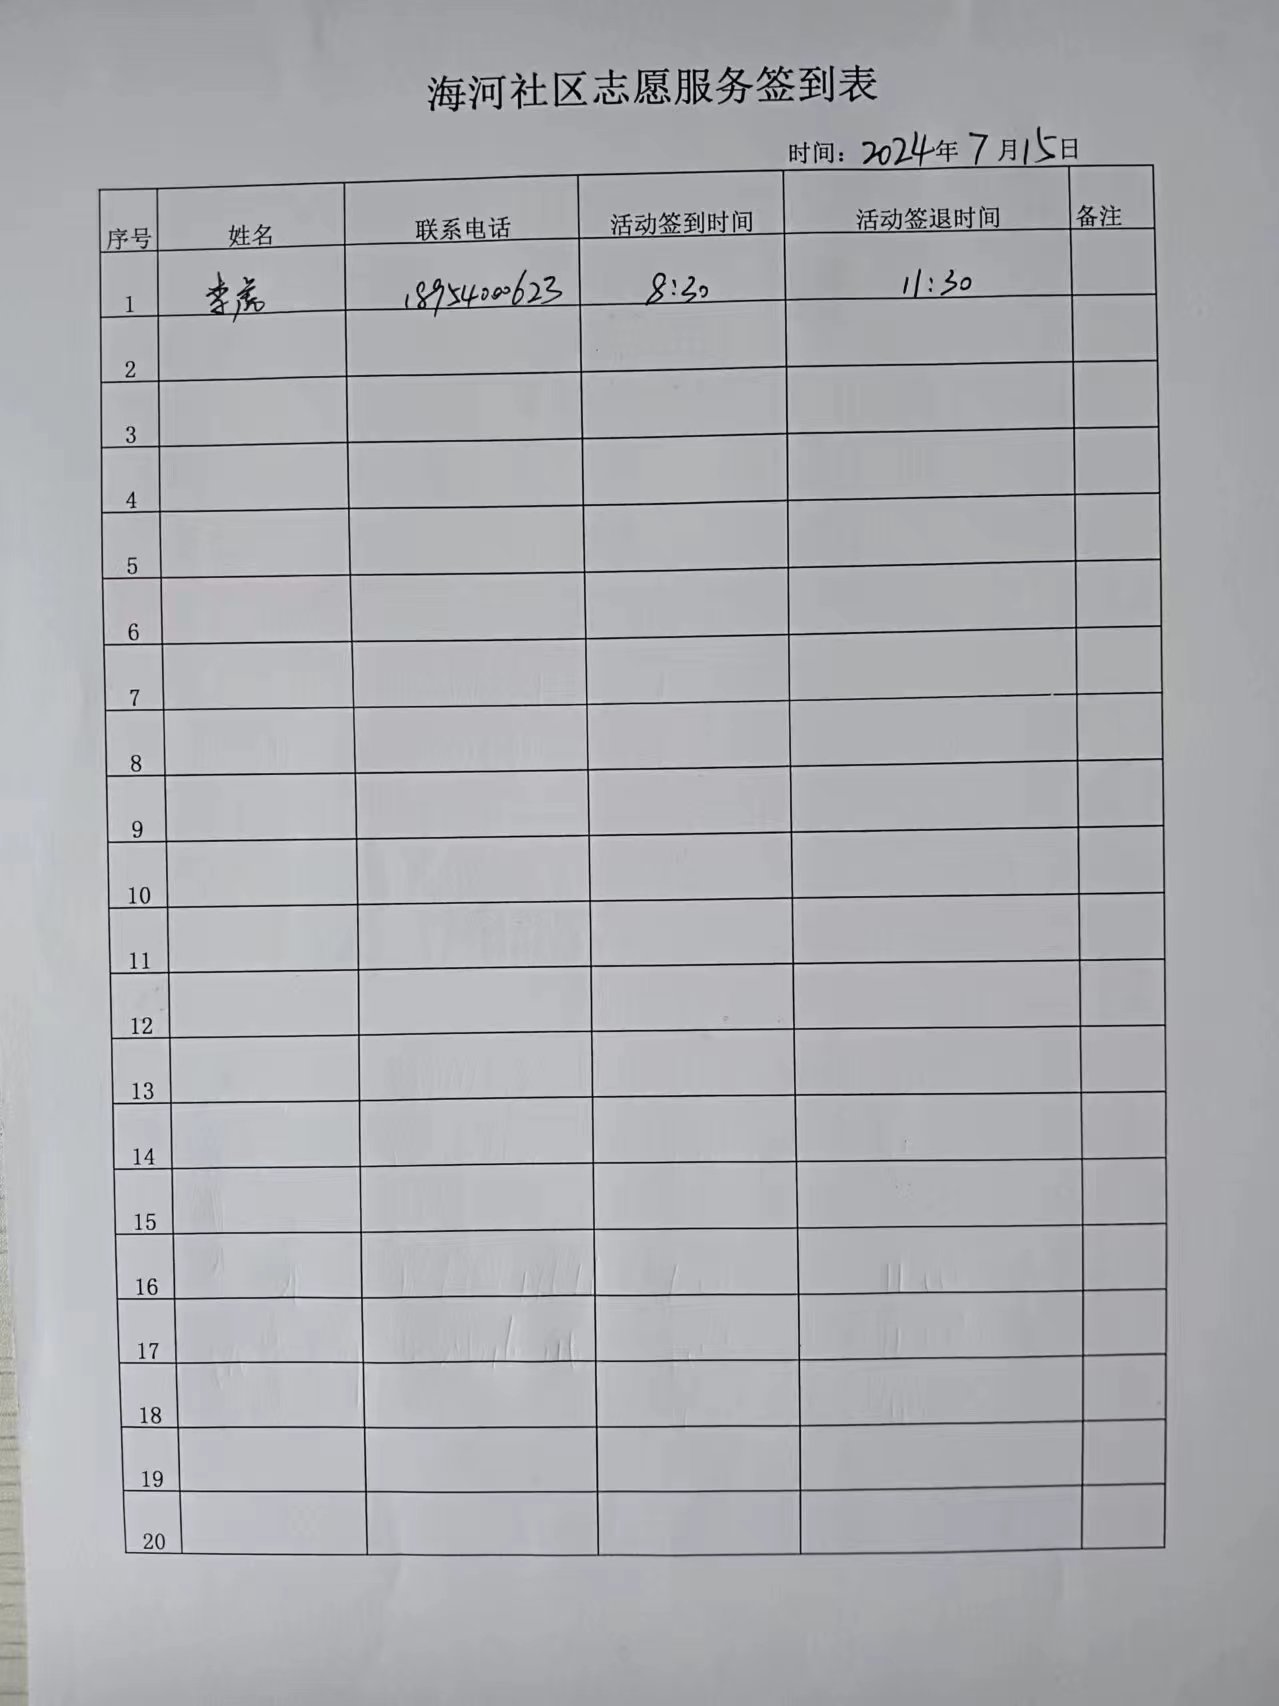 海河社区志愿服务签到表
时间：2024年7月15日
序号 姓名 联系电话 活动签到时间 活动签退时间 备注
1 李 18954000623 8:30 11:30
2
3
4
5
6
7
8
9
10
11
12
13
14
15
16
17
18
19
20